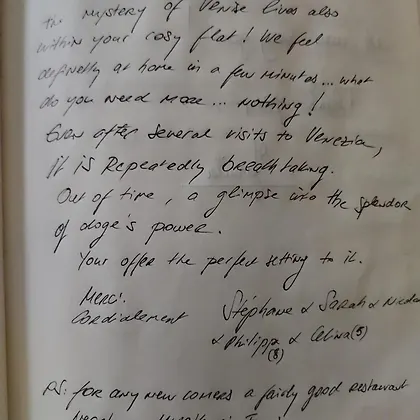 the mystery of Venise lives also
within your cosy flat! We feel
definetly at home in a few minutes... what
do you need more... nothing!
Even after several visits to Venezia,
it is Repeatedly breathtaking.
Out of time, a glimpse into the splendor
of doge's power.
Your offer the perfect setting to it.
Merci.
Cordialement
Stéphane & Sarah &
& Philippe & Celina (5)
(8)
PS: for any new comers a fairly good restaurant